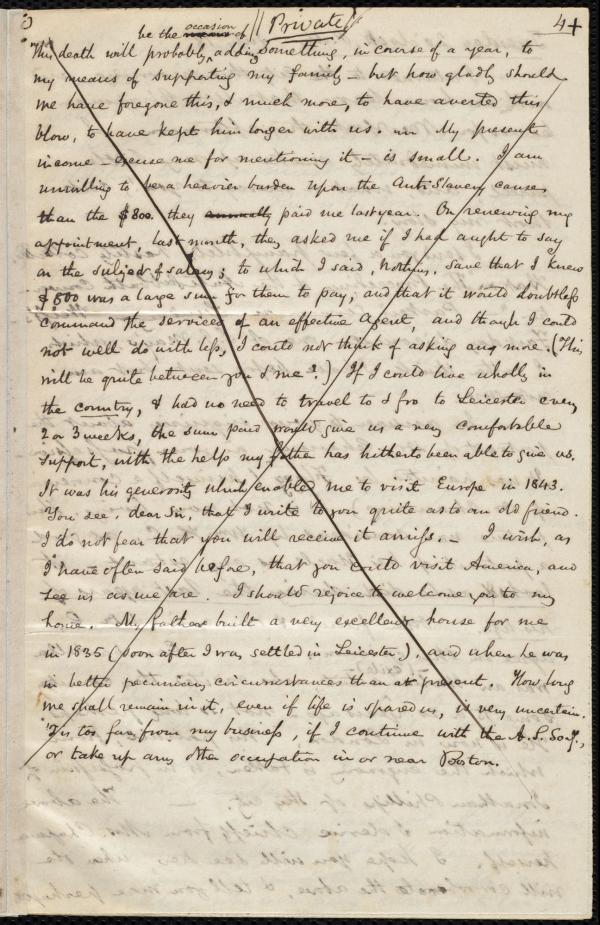 (Private) 4+
be the occasion of
This death will probably, adding something, in course of a year, to
my means of supporting my family – but how gladly should
we have foregone this, & much more, to have averted this
blow, to have kept him longer with us. My present
income – excuse me for mentioning it – is small. I am
unwilling to be a heavier burden upon the Anti Slavery cause,
than the $800. they annually paid me last year. On renewing my
appointment, last month, they asked me if I had aught to say
on the subject of salary; to which I said, Nothing, save that I knew
$800 was a large sum for them to pay, and that it would doubtless
command the services of an effective Agent, and though I could
not well do with less, I could not think of asking any more. (This
will be quite between you & me.) If I could live wholly in
the country, & had no need to travel to & fro to Leicester every
2 or 3 weeks, the sum paid would give us a very comfortable
support, with the help my father has hitherto been able to give us.
It was his generosity which enabled me to visit Europe in 1843.
You see, dear Sir, that I write to you quite as to an old friend.
I do not fear that you will receive it amiss. – I wish, as
I have often said before, that you could visit America, and
see us as we are. I should rejoice to welcome you to my
home. My father built a very excellent house for me
in 1835 (soon after I was settled in Leicester), and when he was
in better pecuniary circumstances than at present. How long
we shall remain in it, even if life is spared us, is very uncertain.
'Tis too far from my business, if I continue with the A. S. Socy.,
or take up any other occupation in or near Boston.